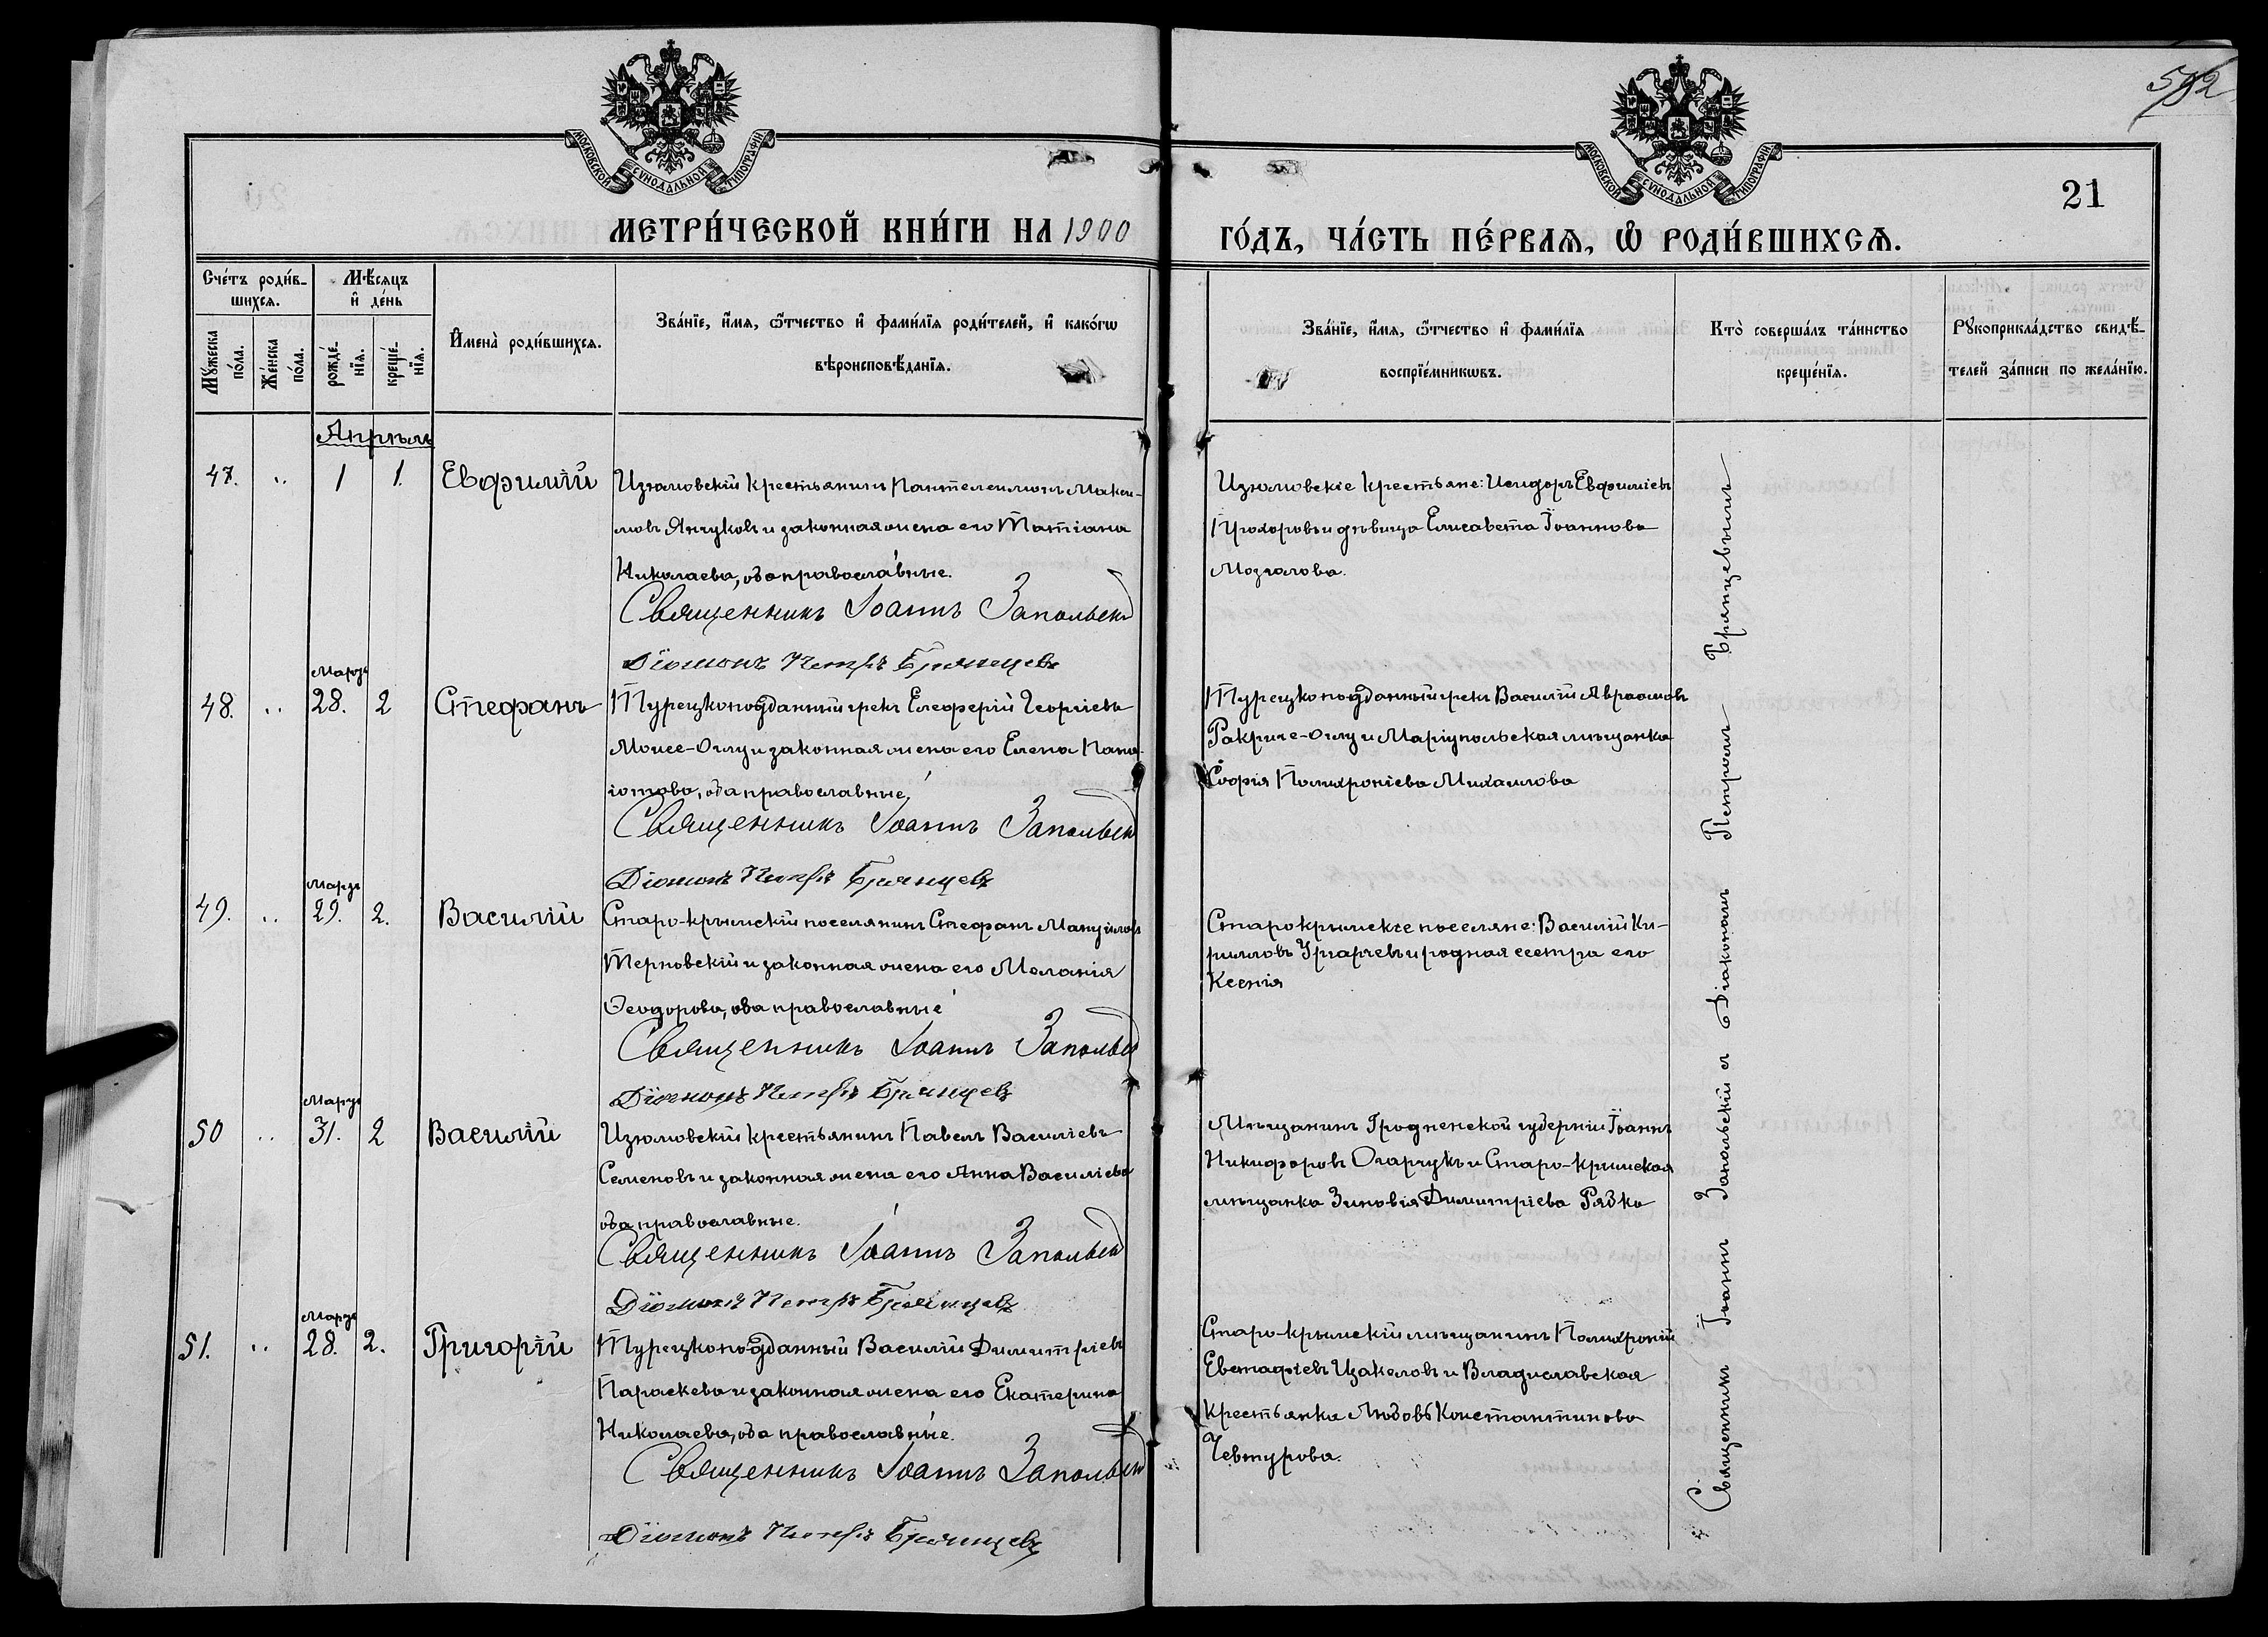 592
МОСКОВСКОЙ СѴНОДАЛЬНОЙ ТИПОГРАФІИ
МОСКОВСКОЙ СѴНОДАЛЬНОЙ ТИПОГРАФІИ
21
МЕТРИ́ЧЕСКОЙ КНИ́ГИ НА 1900
ГО́ДЪ, ЧА́СТЬ ПЕ́РВАѦ, Ѽ РОДИ́ВШИХСѦ.
Сче́тъ роди́в-
шихсѧ.
Мѣ́сѧцъ
и҆ де́нь
Мꙋ́жеска по́ла.
Же́нска по́ла.
рожде́-нїѧ.
креще́-нїѧ.
И҆мена̀ роди́вшихсѧ.
Зва́нїе, и҆́мѧ, ѻ҆́тчество и҆ фами́лїѧ роди́телей, и҆ како́гѡ
вѣроисповѣ́данїѧ.
Зва́нїе, и҆́мѧ, ѻ҆́тчество и҆ фами́лїѧ
воспрїе́мникѡвъ.
Кто̀ соверша́лъ та́инство
креще́нїѧ.
Рꙋкоприкла́дство свидѣ́-
телей за́писи по жела́нїю.
Апрѣль
47. .. 1 1. Евфимій
Изюмовскій крестьянинъ Пантелеимонъ Макси-
мовъ Янчуковъ и законная жена его Татіана
Николаева, оба православные.
Священникъ Іоаннъ Запольскій
Діаконъ Петръ Брянцевъ
Изюмовскіе крестьяне: Исидоръ Евфиміевъ
Прохоровъ и дѣвица Елисавета Іоаннова
Мозгалова.
Марта
48. .. 28. 2 Стефанъ
Турецкоподданный грекъ Елеферій Георгіевъ
Моисе-Оглу и законная жена его Елена Пана-
іотова, оба православные,
Священникъ Іоаннъ Запольскій
Діаконъ Петръ Брянцевъ
Турецкоподданный грекъ Василій Авраамовъ
Ракрисе-Оглу и Маріупольская мѣщанка
Софія Полихроніева Михаилова
Марта
49. .. 29. 2. Василій
Старо-крымскій поселянинъ Стефанъ Мануиловъ
Терновскій и законная жена его Меланія
Ѳеодорова, оба православные
Священникъ Іоаннъ Запольскій
Діаконъ Петръ Брянцевъ
Старокрымскіе поселяне: Василій Ки-
рилловъ и родная сестра его
Ксенія
Марта
50 .. 31. 2 Василій
Изюмовскій крестьянинъ Павелъ Василіевъ
Семеновъ и законная жена его Анна Василіева
оба православные.
Священникъ Іоаннъ Запольскій
Діаконъ Петръ Брянцевъ
Мѣщанинъ Гродненской губерніи Іоаннъ
Никифоровъ Огарчукъ и Старо-Крымская
мѣщанка Зиновія Димитріева Рябко
Марта
51. .. 28. 2. Григорій
Турецкоподданный Василій Димитріевъ
Параскева и законная жена его Екатерина
Николаева, оба православные.
Священникъ Іоаннъ Запольскій
Діаконъ Петръ Брянцевъ
Старо-крымскій мѣщанинъ Полихроній
Евстафіевъ Цакеловъ и Владиславская
крестьянка Любовь Константинова
Чевтурова.
Священникъ Іоаннъ Запольскій съ Діакономъ Петромъ Брянцевымъ